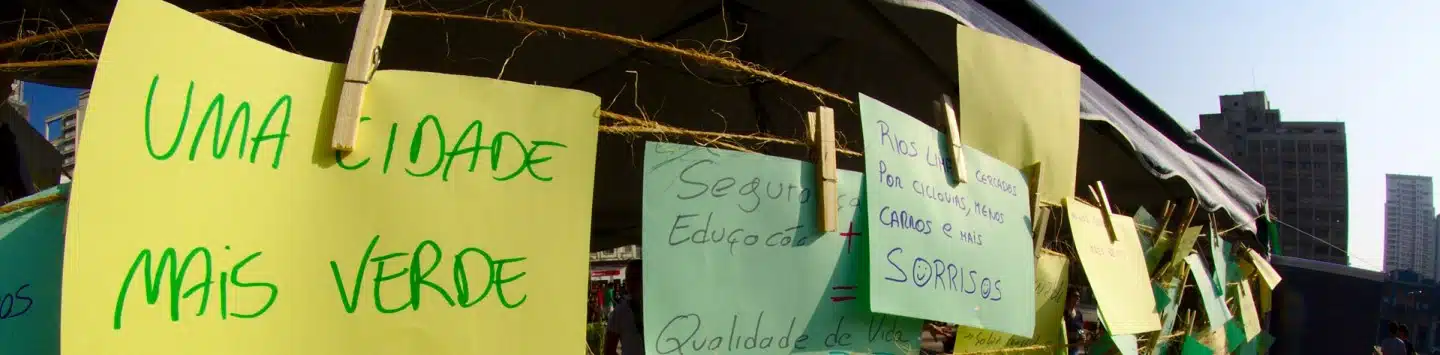 UMA CIDADE
MAIS VERDE
Segurança
Eduçocão +
=
Qualidade de Vida
RIOS LIMPOS CERCADOS
POR CICLOVIAS, MENOS
CARROS E MAIS
SORRISOS